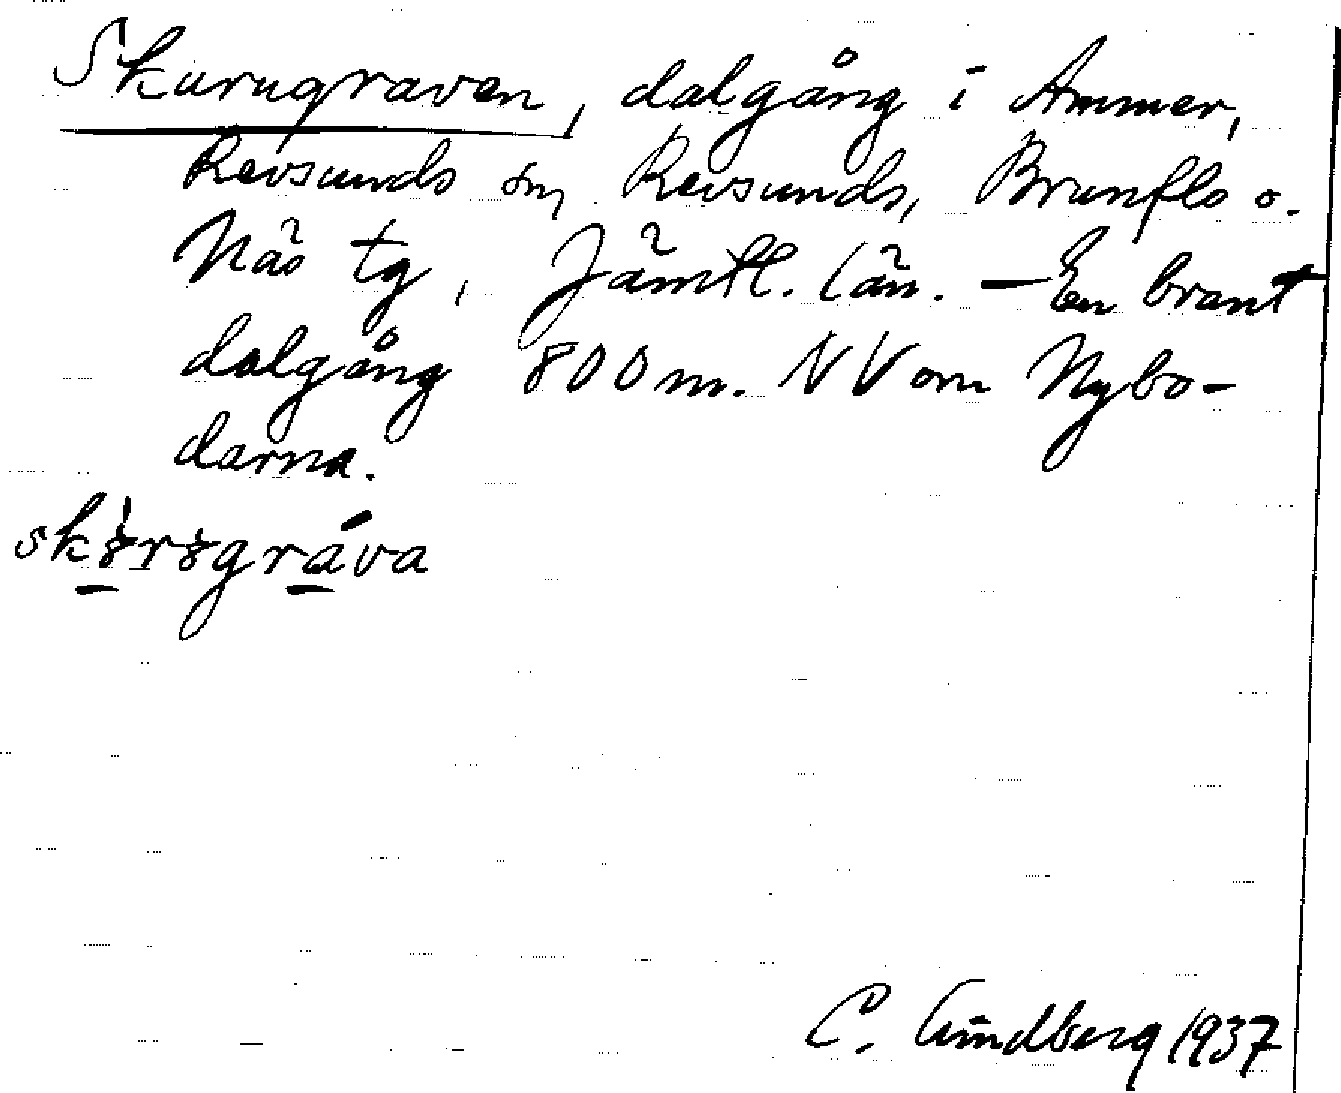 Skurugraven, dalgång i Ammer,
Revsunds sn, Revsunds, Brunflo o.
Näs tg, Jämtl. län. — En brant
dalgång 800 m. NV om Nybo-
darna.
C. Lindberg 1937